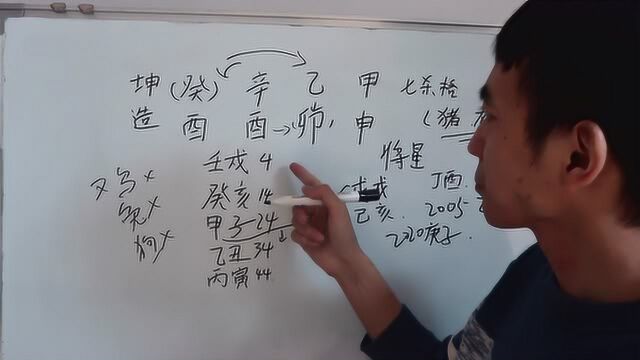 坤 (癸) 辛 乙 甲 七杀格
造 酉 酉→卯, 申 (猪
壬戌 4 将星
癸亥 14 戊戌 丁酉
又 鸟 × 己亥 2005
兔 × 甲子-24 2020庚子
狗 × 乙丑 34
丙寅 44